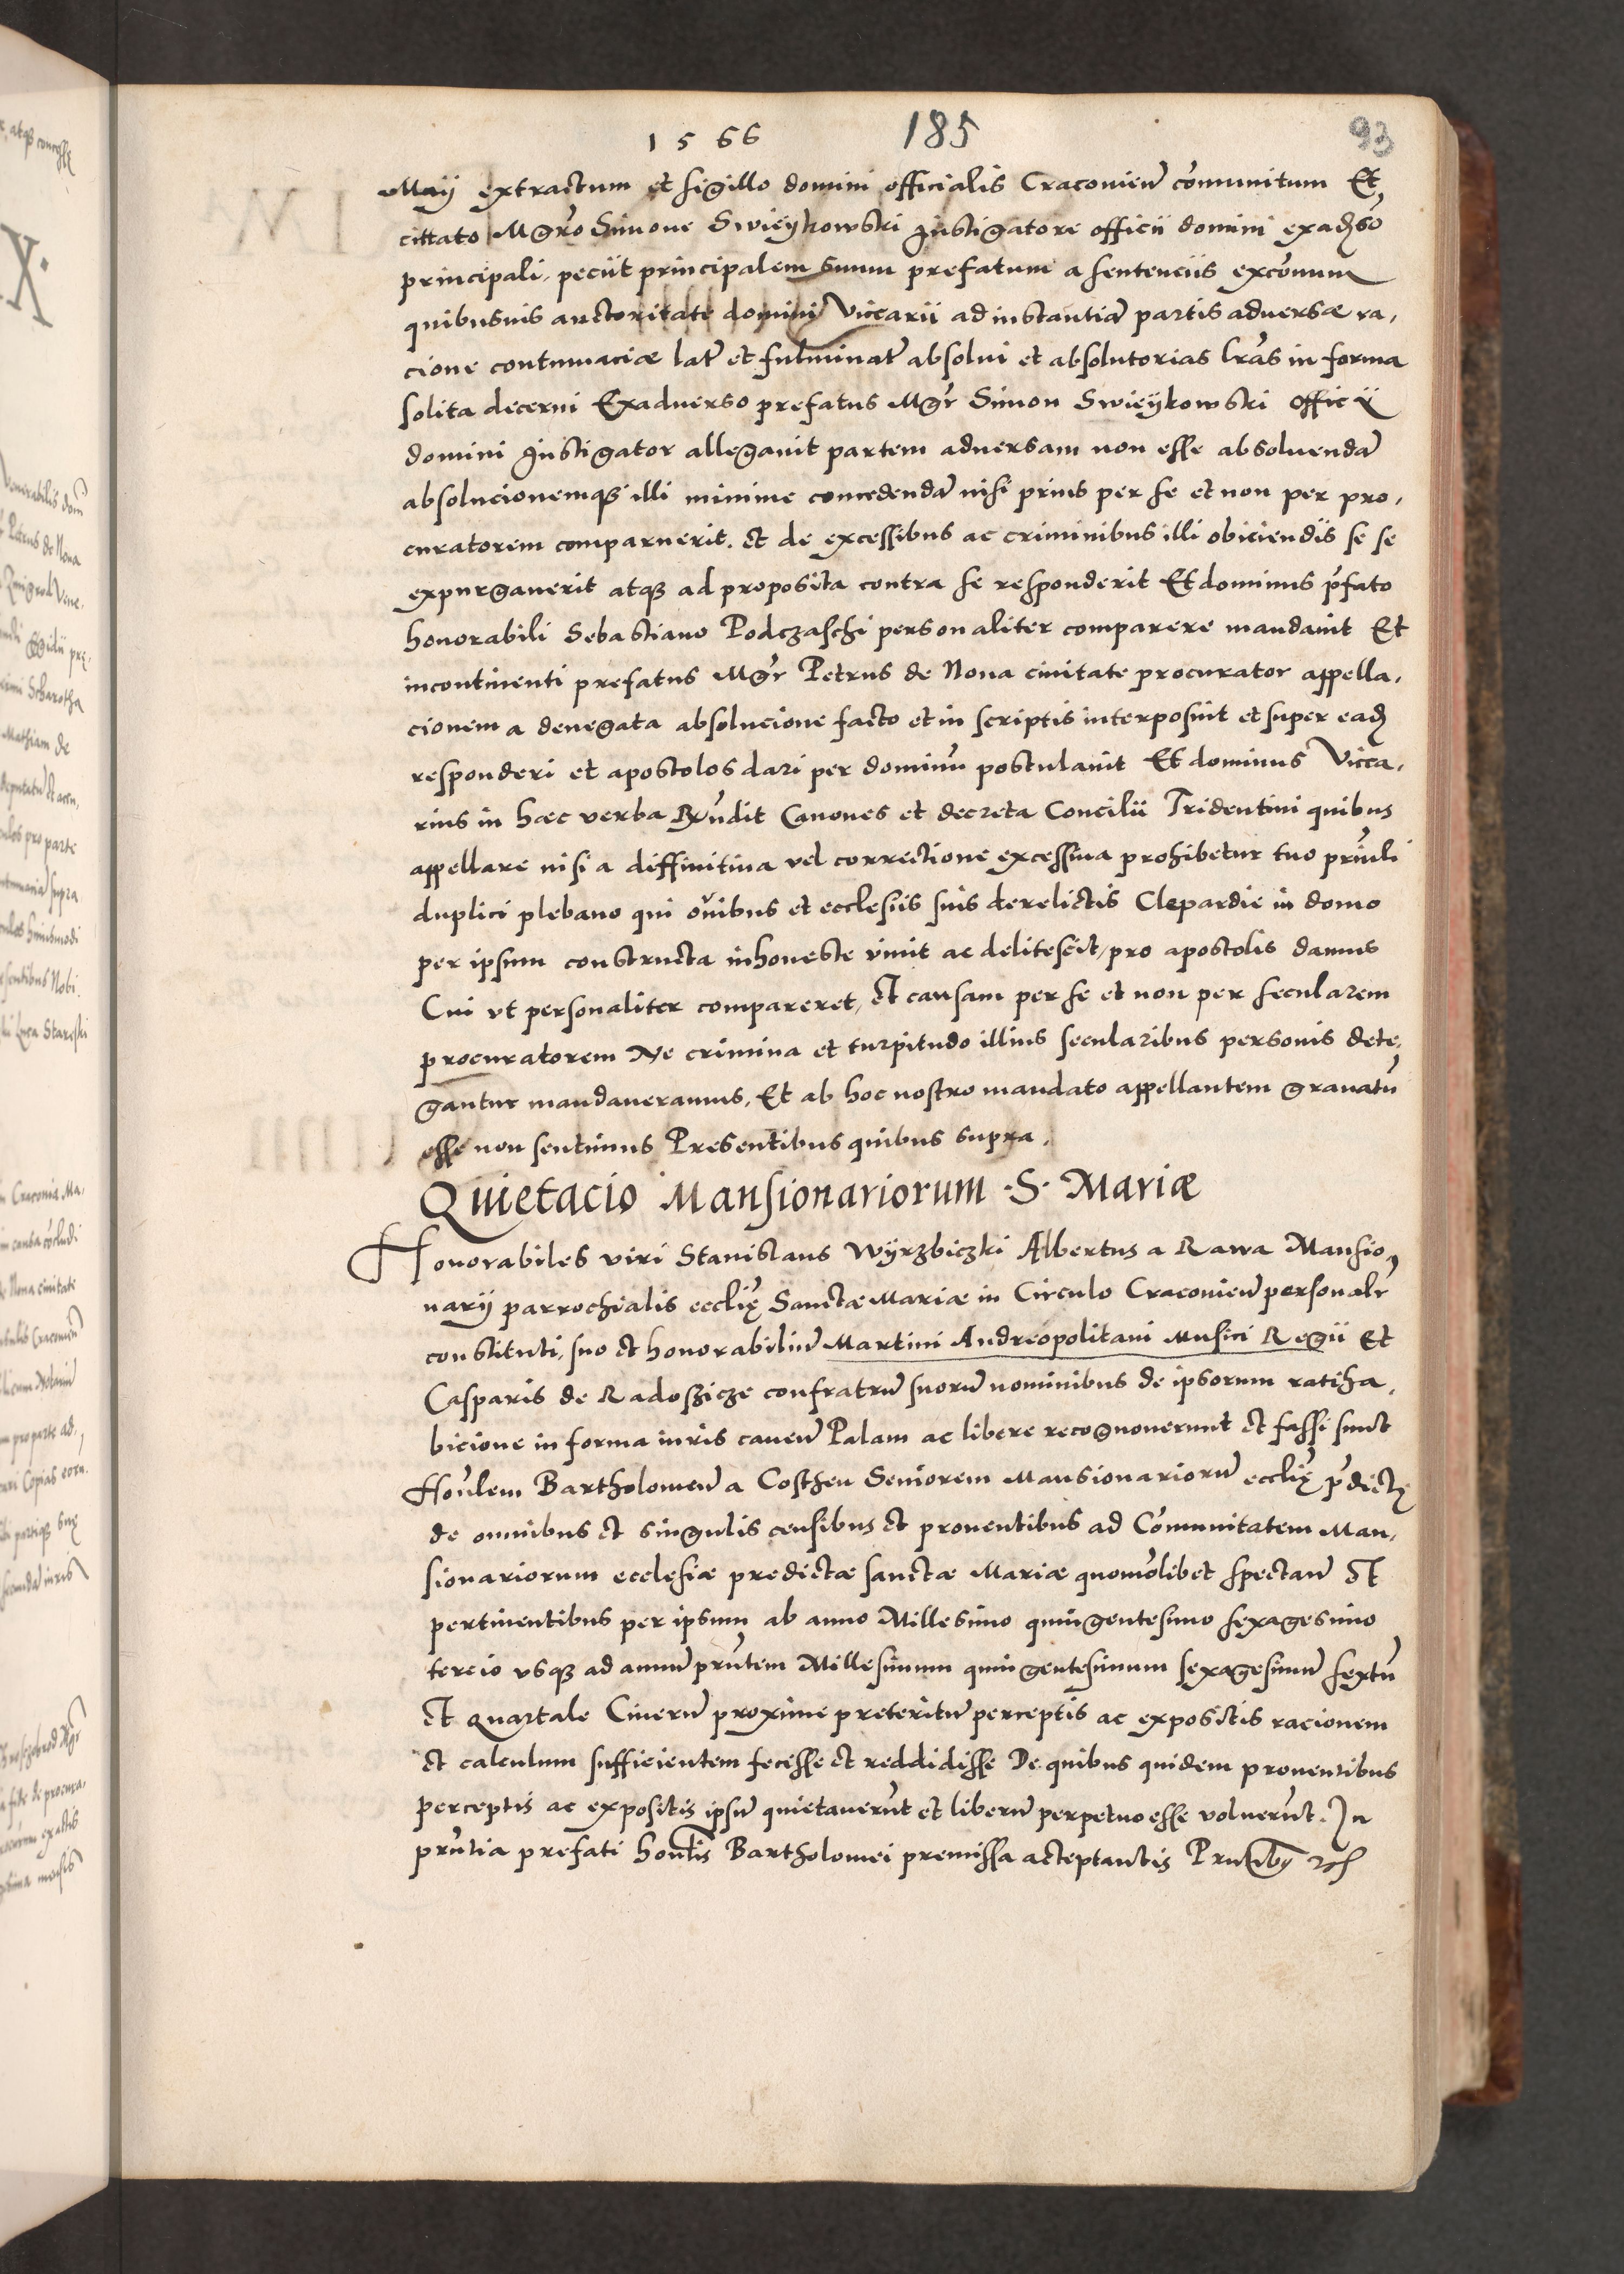 1566 185 93
Maij extractum et sigillo domini officialis Cracovien̄ com̄unitum Et
cittato Mgr̄o Simone Swieykowski Instigatore officii domini exad̄so
principali, peciit principalem suum prefatum a sentenciis excom̄um
quibusuis auctoritate domini Viccarii ad instantiā partis aduersæ ra,
cione contumaciæ lat̄ et fulminat̄ absolui et absolutorias lr̄as in forma
solita decerni Exaduerso prefatus Mgr̄ Simon Swieykowski officij
domini Instigator allegauit partem aduersam non esse absoluendā
absolucionemqȝ illi minime concedendā nisi prius per se et non per pro,
curatorem comparuerit. et de excessibus ac criminibus illi obiiciendis se se
expurgauerit atqȝ ad proposita contra se responderit Et dominus p̄fato
honorabili Sebastiano Podczaschi personaliter comparere mandauit Et
incontinenti prefatus Mgr̄ Petrus de Noua ciuitate procurator appella,
cionem a denegata absolucione facto et in scriptis interposuit et super ead̄
responderi et apostolos dari per dominū postulauit Et dominus Vicca,
rius in hæc verba Rn̄dit Canones et decreta Concilii Tridentini quibus
appellare nisi a diffinitiua vel correctione excessiua prohibetur tuo prin̄li
duplici plebano qui ouibus et ecclesiis suis derelictis Clepardie in domo
per ipsum constructa inhoneste viuit ac delitescit, pro apostolis damus
Cui vt personaliter compareret, et causam per se et non per secularem
procuratorem Ne crimina et turpitudo illius secularibus personis dete,
gantur mandaueramus, Et ab hoc nostro mandato appellantem grauatū
esse non sentimus Presentibus quibus supra.
Quietacio Mansionariorum ·S· Mariæ
Honorabiles viri Stanislaus Wyrzbiczki Albertus a Rawa Mansio,
narij parrochialis eccl̄ię Sanctæ Mariæ in Circulo Cracovien̄ personalr̄
constituti, suo et honorabiliū Martini Andreopolitani Musici Regii Et
Casparis de Radoszicze confratrū suorū nominibus de ipsorum ratiha,
bicione in forma iuris cauen̄ Palam ac libere recognouerunt et fassi sunt
Hon̄lem Bartholomeū a Costhen Seniorem Mansionariorū eccl̄ię p̄dictę
de omnibus et singulis censibus et prouentibus ad Com̄unitatem Man,
sionariorum ecclesiæ predictæ sanctæ Mariæ quomōlibet spectan̄ Et
pertinentibus per ipsum ab anno Millesimo quingentesimo sexagesimo
tercio vsqȝ ad annū prn̄tem Millesimum quingentesimum sexagesimū sextū
et quartale Cinerū proxime preteritū perceptis ac expositis racionem
et calculum sufficientem fecisse et reddidisse De quibus quidem prouentibus
perceptis ac expositis ipsū quietauerūt et liberū perpetuo esse voluerūt. In
prn̄tia prefati hon̄lis Bartholomei premissa acceptantis Prn̄tibȝ